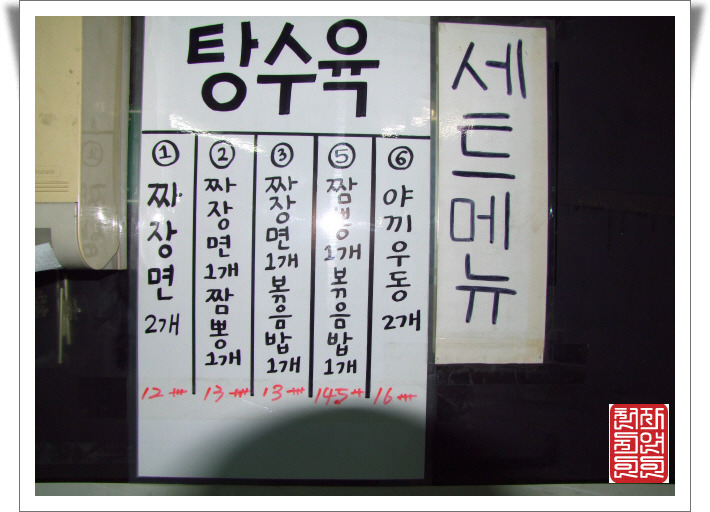 탕수육
세트메뉴
① 짜장면 2개
② 짜장면 1개 짬뽕 1개
③ 짜장면 1개 볶음밥 1개
⑤ 짬뽕 1개 볶음밥 1개
⑥ 야끼우동 2개
12
13
13
145
16